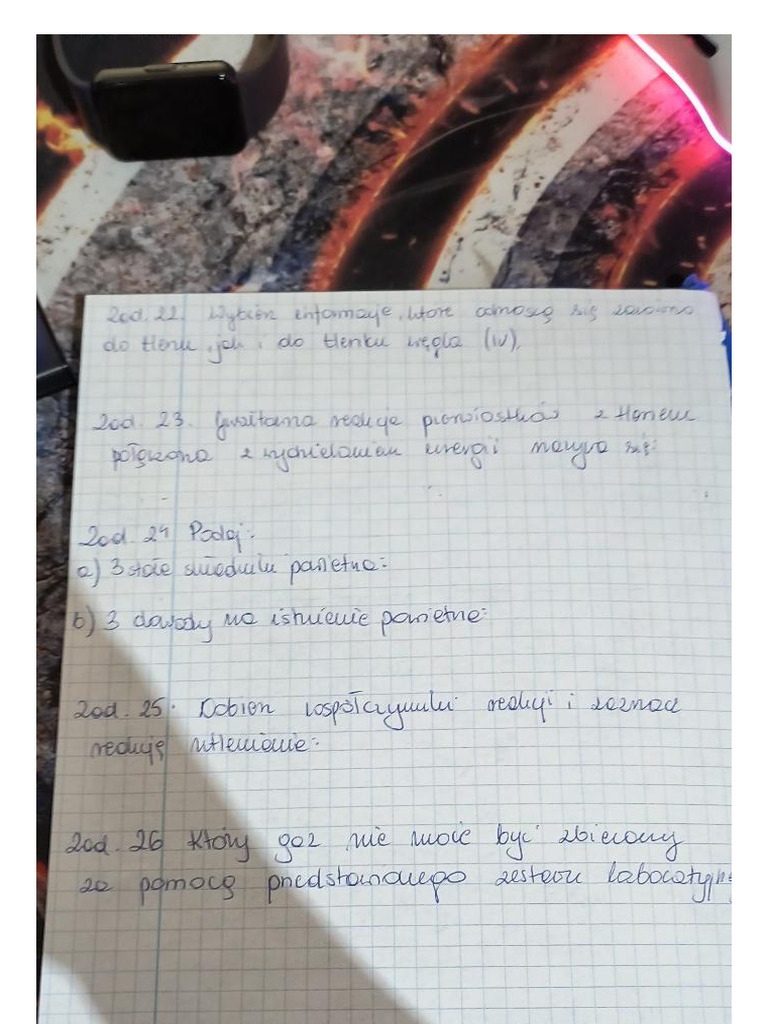 Zad. 22. Wybierz informacje, które odnoszą się zarówno
do tlenu, jak i do tlenku węgla (IV).
Zad. 23. Gwałtowna reakcja pierwiastków z tlenem
połączona z wydzielaniem energii nazywa się:
Zad. 24 Podaj:
a) 3 stałe składniki powietrza:
b) 3 dowody na istnienie powietrza:
Zad. 25. Dobierz współczynniki reakcji i zaznacz
reakcję utleniania:
Zad. 26 Który gaz nie może być zbierany
za pomocą przedstawionego zestawu